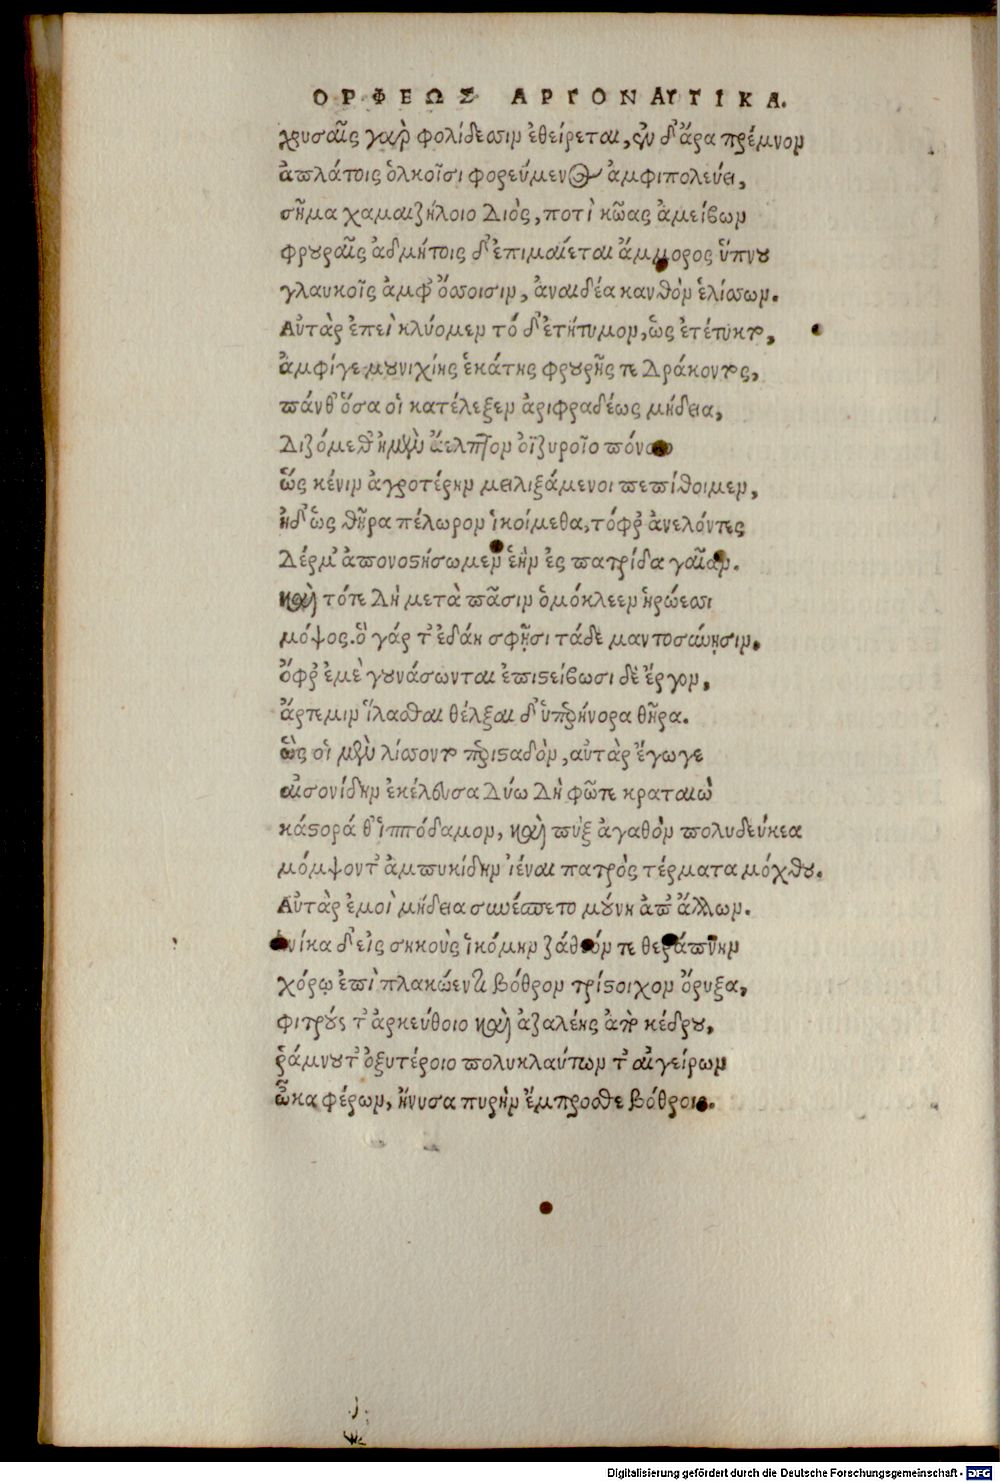 ΟΡΦΕΩΣ ΑΡΓΟΝΑΥΤΙΚΑ.
χρυσαῖς γὰρ φολίδεσσιν ἐθείρεται, ἐν δ' ἄρα πρέμνον
ἀπλάτοις ὁλκοῖσι φορεύμενος ἀμφιπολεύει,
σῆμα χαμαιζήλοιο Διὸς, ποτὶ κῶας ἀμείβων
φρουραῖς ἀδμήτοις δ' ἐπιμαίεται ἄμμορος ὕπνου
γλαυκοῖς ἀμφ' ὄσσοισιν, ἀναιδέα κανθὸν ἑλίσσων.
Αὐτὰρ ἐπεὶ κλύομεν τό δ' ἐτήτυμον, ὡς ἐτέτυκτο,
ἀμφίγε μουνιχίης ἑκάτης φρουρῆς τε Δράκοντος,
πάνθ' ὅσα οἱ κατέλεξεν ἀριφραδέως μήδεια,
Διζόμεθ' ἡμὲν ἄελπτον ὀϊζυροῖο πόνοιο
ὥς κένιν ἀγροτέρην μειλιξάμενοι πεπίθοιμεν,
ἠδ' ὡς θῆρα πέλωρον ἱκοίμεθα, τόφρ' ἀνελόντες
Δέρμ' ἀπονοστήσωμεν ἑὴν ἐς πατρίδα γαῖαν.
καὶ τότε Δὴ μετὰ πᾶσιν ὁμόκλεεν ἡρώεσσι
μόψος. ὃ γάρ τ' ἐδάη σφῇσι τάδε μαντοσύνῃσιν.
ὄφρ' ἐμὲ γουνάσωνται ἐπιστείβωσι δὲ ἔργον,
ἄρτεμιν ἵλασθαι θέλξαι δ' ὑπερήνορα θῆρα.
ὣς οἱ μὲν λίσσοντο περισταδὸν, αὐτὰρ ἔγωγε
αἰσονίδην ἐκέλευσα Δύω Δὴ φῶτε κραταιὼ
κάστορά θ' ἱππόδαμον, καὶ πὺξ ἀγαθὸν πολυδεύκεα
μόμψον τ' ἀμπυκίδην ἰέναι πατρὸς τέρματα μόχθου.
Αὐτὰρ ἐμοὶ μήδεια συνέσπετο μούνη ἀπ' ἄλλων.
Ἡνίκα δ' εἰς σηκοὺς ἱκόμην ζάθεόν τε θεράπνην
χόρῳ ἐπὶ πλακόεντι βόθρον τρίστοιχον ὄρυξα,
φιτροὺς τ' ἀρκεύθοιο καὶ ἀζαλένς ἀπὸ κέδρου,
ῥάμνου τ' ὀξυτέροιο πολυκλαύτων τ' αἰγείρων
ὦκα φέρων, ἤνυσα πυρὴν ἔμπροσθε βόθροιο.
Digitalisierung gefördert durch die Deutsche Forschungsgemeinschaft - DFG